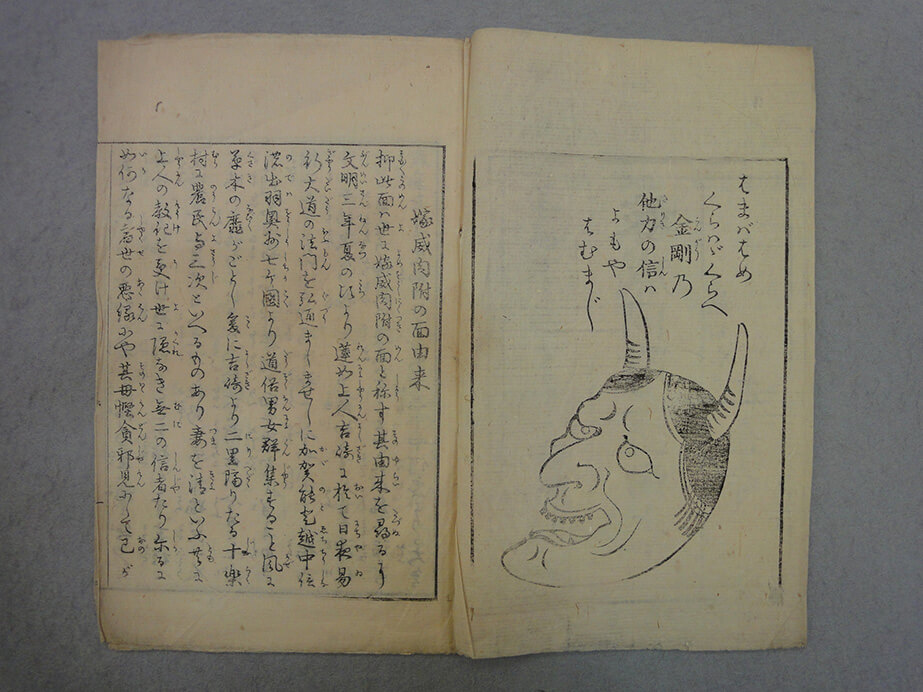 はまばはめ
くらハゞくらへ
金剛乃
他力の信ハ
よもや
はむまじ
嫁威肉附の面由来
抑此面ハ世に嫁威肉附の面と称す其由来を尋るに
文明三年夏の頃より蓮如上人吉崎に於て日夜易
行大道の法門を弘通ましませしに加賀能登越中信
濃出羽奥州七ケ國より道俗男女群集すること風に
草木の靡がごとし爰に吉崎より二里隔りたる十楽
村に農民与三次といへるものあり妻を清といふ共に
上人の教化を受け世に隠なき無二の信者たり尓るに
如何なる宿世の悪縁にや其母慳貪邪見にして己が